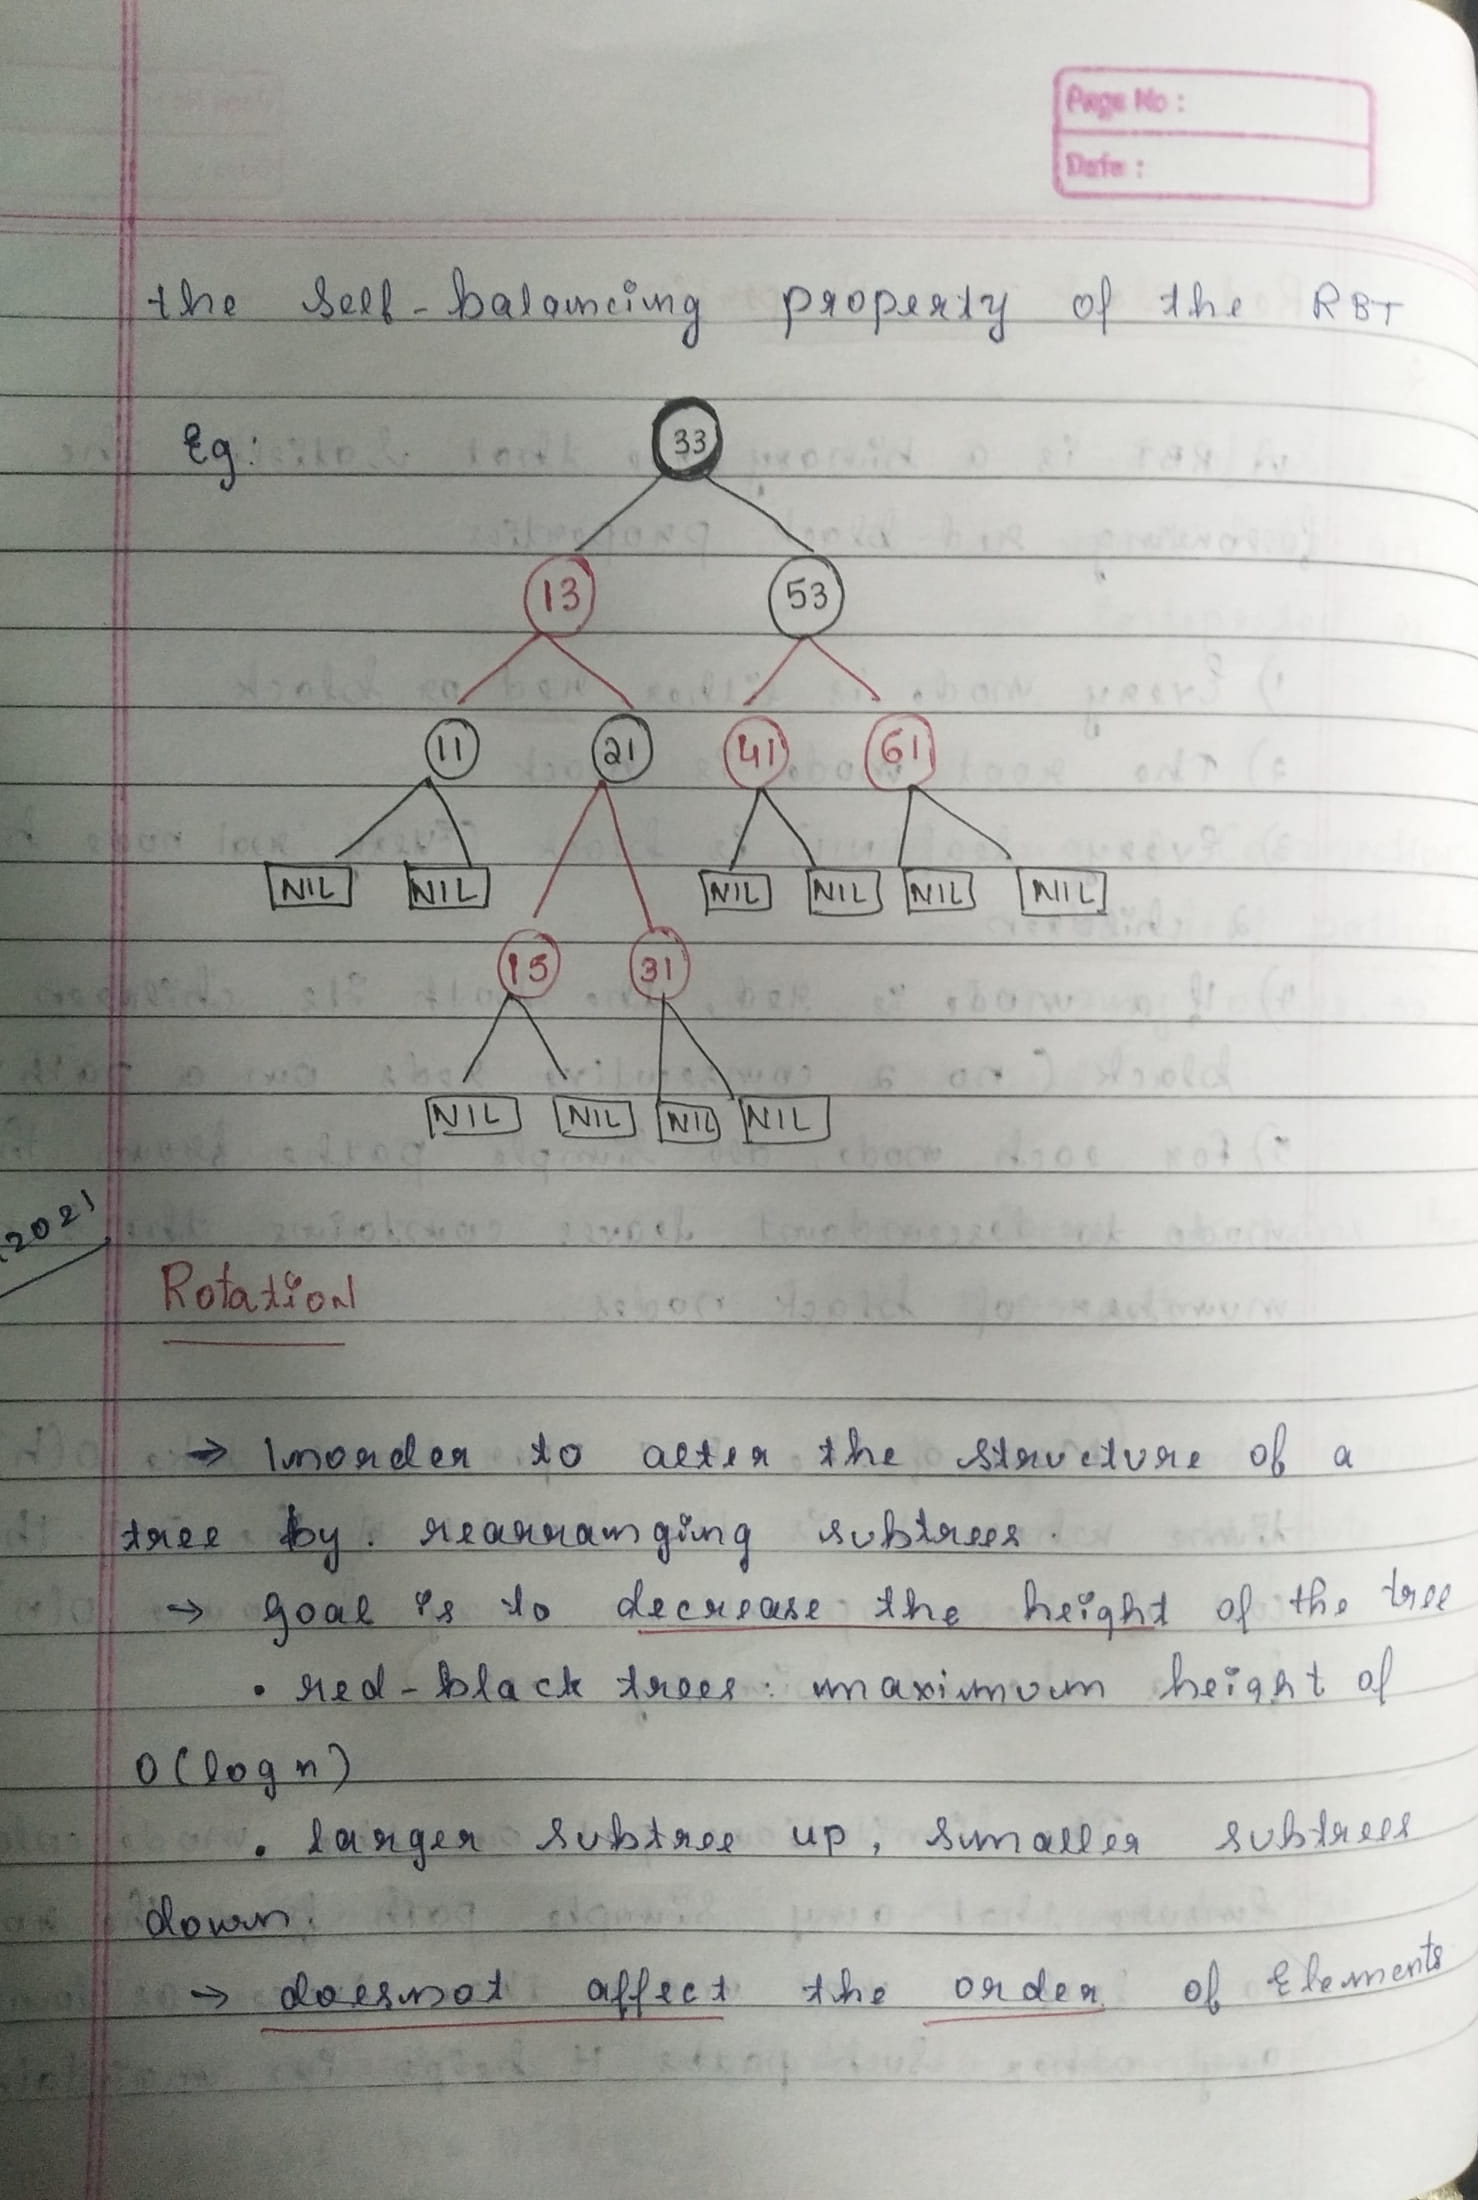 Page No :
Date :
the self-balancing property of the RBT
Eg:
33
13 53
11 21 41 61
NIL NIL NIL NIL NIL NIL
15 31
NIL NIL NIL NIL
2021
Rotation
→ Inorder to alter the structure of a
tree by. rearranging subtrees.
→ goal is to decrease the height of the tree
• red-black trees: maximum height of
O(log n)
• larger subtree up, smaller subtrees
down.
→ doesnot affect the order of Elements